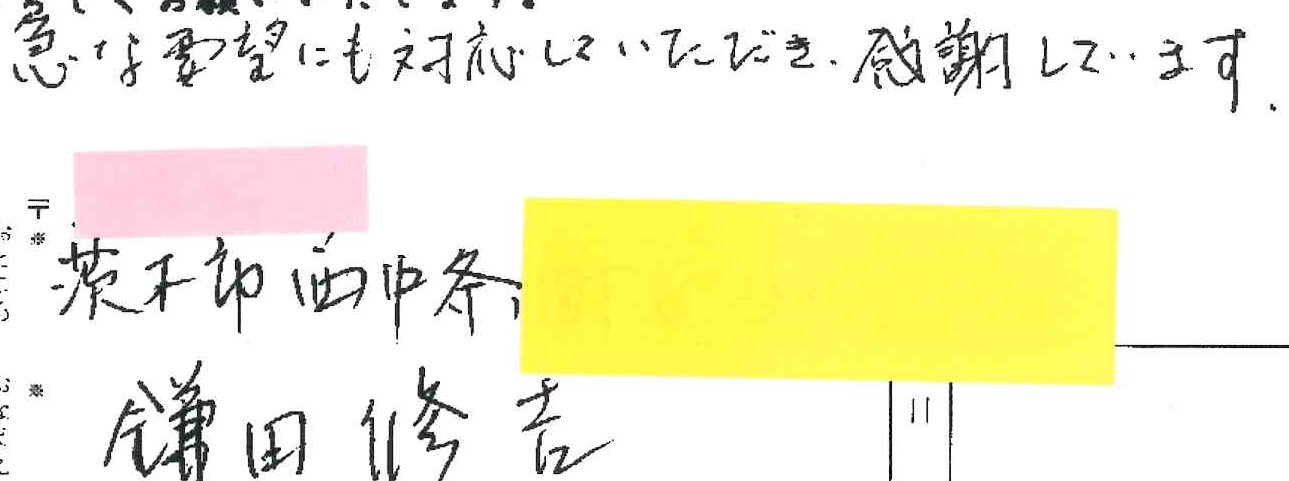 急な要望にも対応していただき、感謝しています.
〒
※
茨木市西中条
※
鎌田修吉